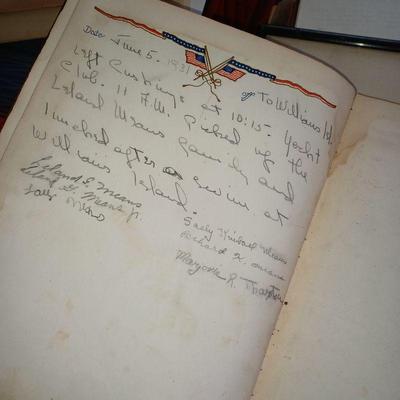 Date June 5. 1931 To Williams Isl.
Left Cushing's at 10:15. Yacht
Club. 11 A.M. Picked up the
Leland Means family and
lunched after a swim at
Williams Island.
Leland E. Means
Leland G. Means Jr.
Sally Means
Sally Kimball Means
Richard K. Means
Marjorie R. Thaxter.